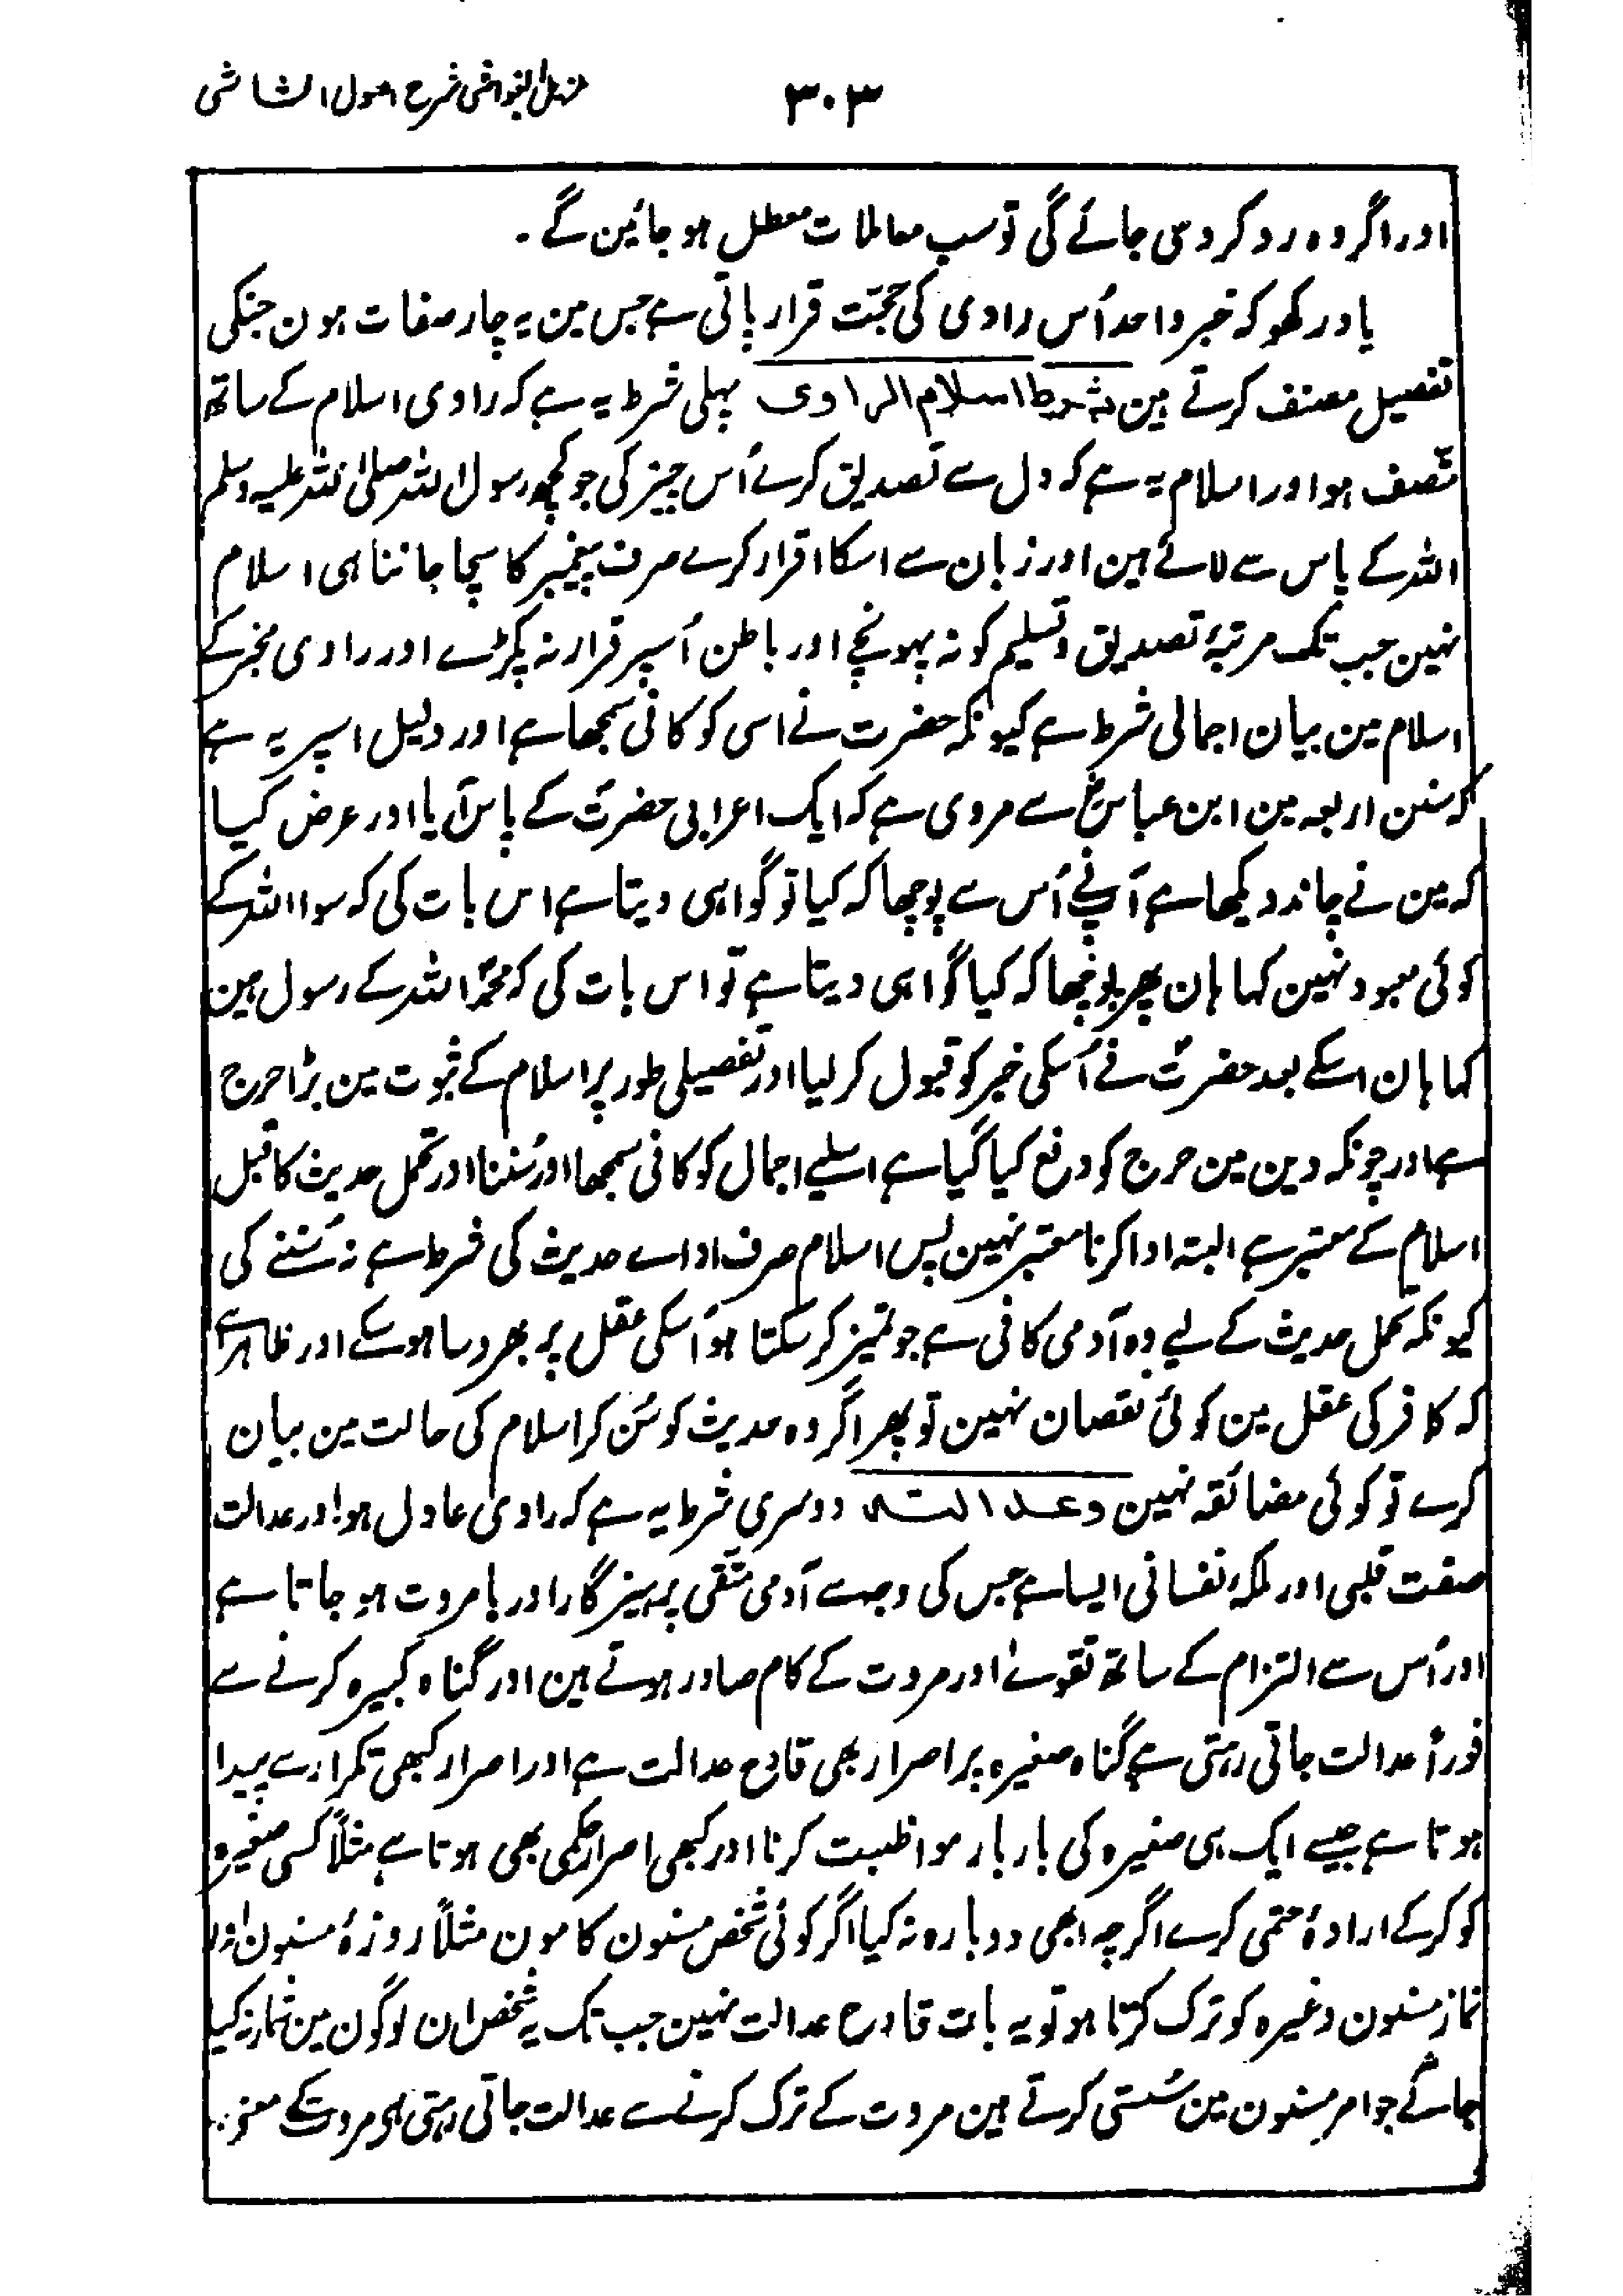 ۳۰۳
مزیل الغواشی شرح اصول الشاشی
اور اگر وہ رد کر دی جائے گی تو سب معاملات معطل ہو جائین گے۔
یاد رکھو کہ خبر واحد اُس راوی کی حجّت قرار پاتی ہے جس مین یہ چار صفات ہون جنکی
تفصیل مصنف کرتے ہین شرط اسلام الراوی پہلی شرط یہ ہے کہ راوی اسلام کے ساتھ
متّصف ہو اور اسلام یہ ہے کہ دل سے تصدیق کرے اُس چیز کی جو کچھ رسول اللہ صلی اللہ علیہ وسلم
اللہ کے پاس سے لائے ہین اور زبان سے اسکا اقرار کرے صرف پیغمبر کا سچا جاننا ہی اسلام
نہین جب تک مرتبۂ تصدیق و تسلیم کو نہ پہونچے اور باطن اُسپر قرار نہ پکڑے اور راوی مخبر کے
اسلام مین بیان اجمالی شرط ہے کیونکہ حضرت نے اسی کو کافی سمجھا ہے اور دلیل اسپر یہ ہے
کہ سنن اربعہ مین ابن عباسؓ سے مروی ہے کہ ایک اعرابی حضرتؐ کے پاس آیا اور عرض کیا
کہ مین نے چاند دیکھا ہے آپنے اُس سے پوچھا کہ کیا تو گواہی دیتا ہے اس بات کی کہ سوا اللہ کے
کوئی معبود نہین کہا ہان پھر پوچھا کہ کیا گواہی دیتا ہے تو اس بات کی کہ محمدؐ اللہ کے رسول ہین
کہا ہان اسکے بعد حضرتؐ نے اُسکی خبر کو قبول کر لیا اور تفصیلی طور پر اسلام کے ثبوت مین بڑا حرج
ہے اور چونکہ دین مین حرج کو دفع کیا گیا ہے اسلیے اجمال کو کافی سمجھا اور سُننا اور تحمل حدیث کا قبل
اسلام کے معتبر ہے البتہ ادا کرنا معتبر نہین پس اسلام صرف اداے حدیث کی شرط ہے نہ سُننے کی
کیونکہ تحمل حدیث کے لیے وہ آدمی کافی ہے جو تمیز کر سکتا ہو اُسکی عقل پر بھروسا ہو سکے اور ظاہر ہے
کہ کافر کی عقل مین کوئی نقصان نہین تو پھر اگر وہ حدیث کو سُن کر اسلام کی حالت مین بیان
کرے تو کوئی مضائقہ نہین وعدالتہ دوسری شرط یہ ہے کہ راوی عادل ہو اور عدالت
صفت قلبی اور ملکۂ نفسانی ایسا ہے جس کی وجہ سے آدمی متّقی پرہیزگار اور با مروت ہو جاتا ہے
اور اُس سے التزام کے ساتھ تقوےٰ اور مروت کے کام صادر ہوتے ہین اور گناہ کبیرہ کرنے سے
فوراً عدالت جاتی رہتی ہے گناہ صغیرہ پر اصرار بھی قادح عدالت ہے اور اصرار کبھی تکرار سے پیدا
ہوتا ہے جیسے ایک ہی صغیرہ کی بار بار مواظبت کرنا اور کبھی اصرار حکمی بھی ہوتا ہے مثلاً کسی صغیرہ
کو کرکے ارادۂ حتمی کرے اگرچہ ابھی دوبارہ نہ کیا اگر کوئی شخص مسنون کامون مثلاً روزۂ مسنون اور
نماز مسنون وغیرہ کو ترک کرتا ہو تو یہ بات قادح عدالت نہین جب تک یہ شخص ان لوگون مین شمار نہ کیا
جائے گا جو امر مسنون مین سُستی کرتے ہین مروت کے ترک کرنے سے عدالت جاتی رہتی ہے مروت کے معنے